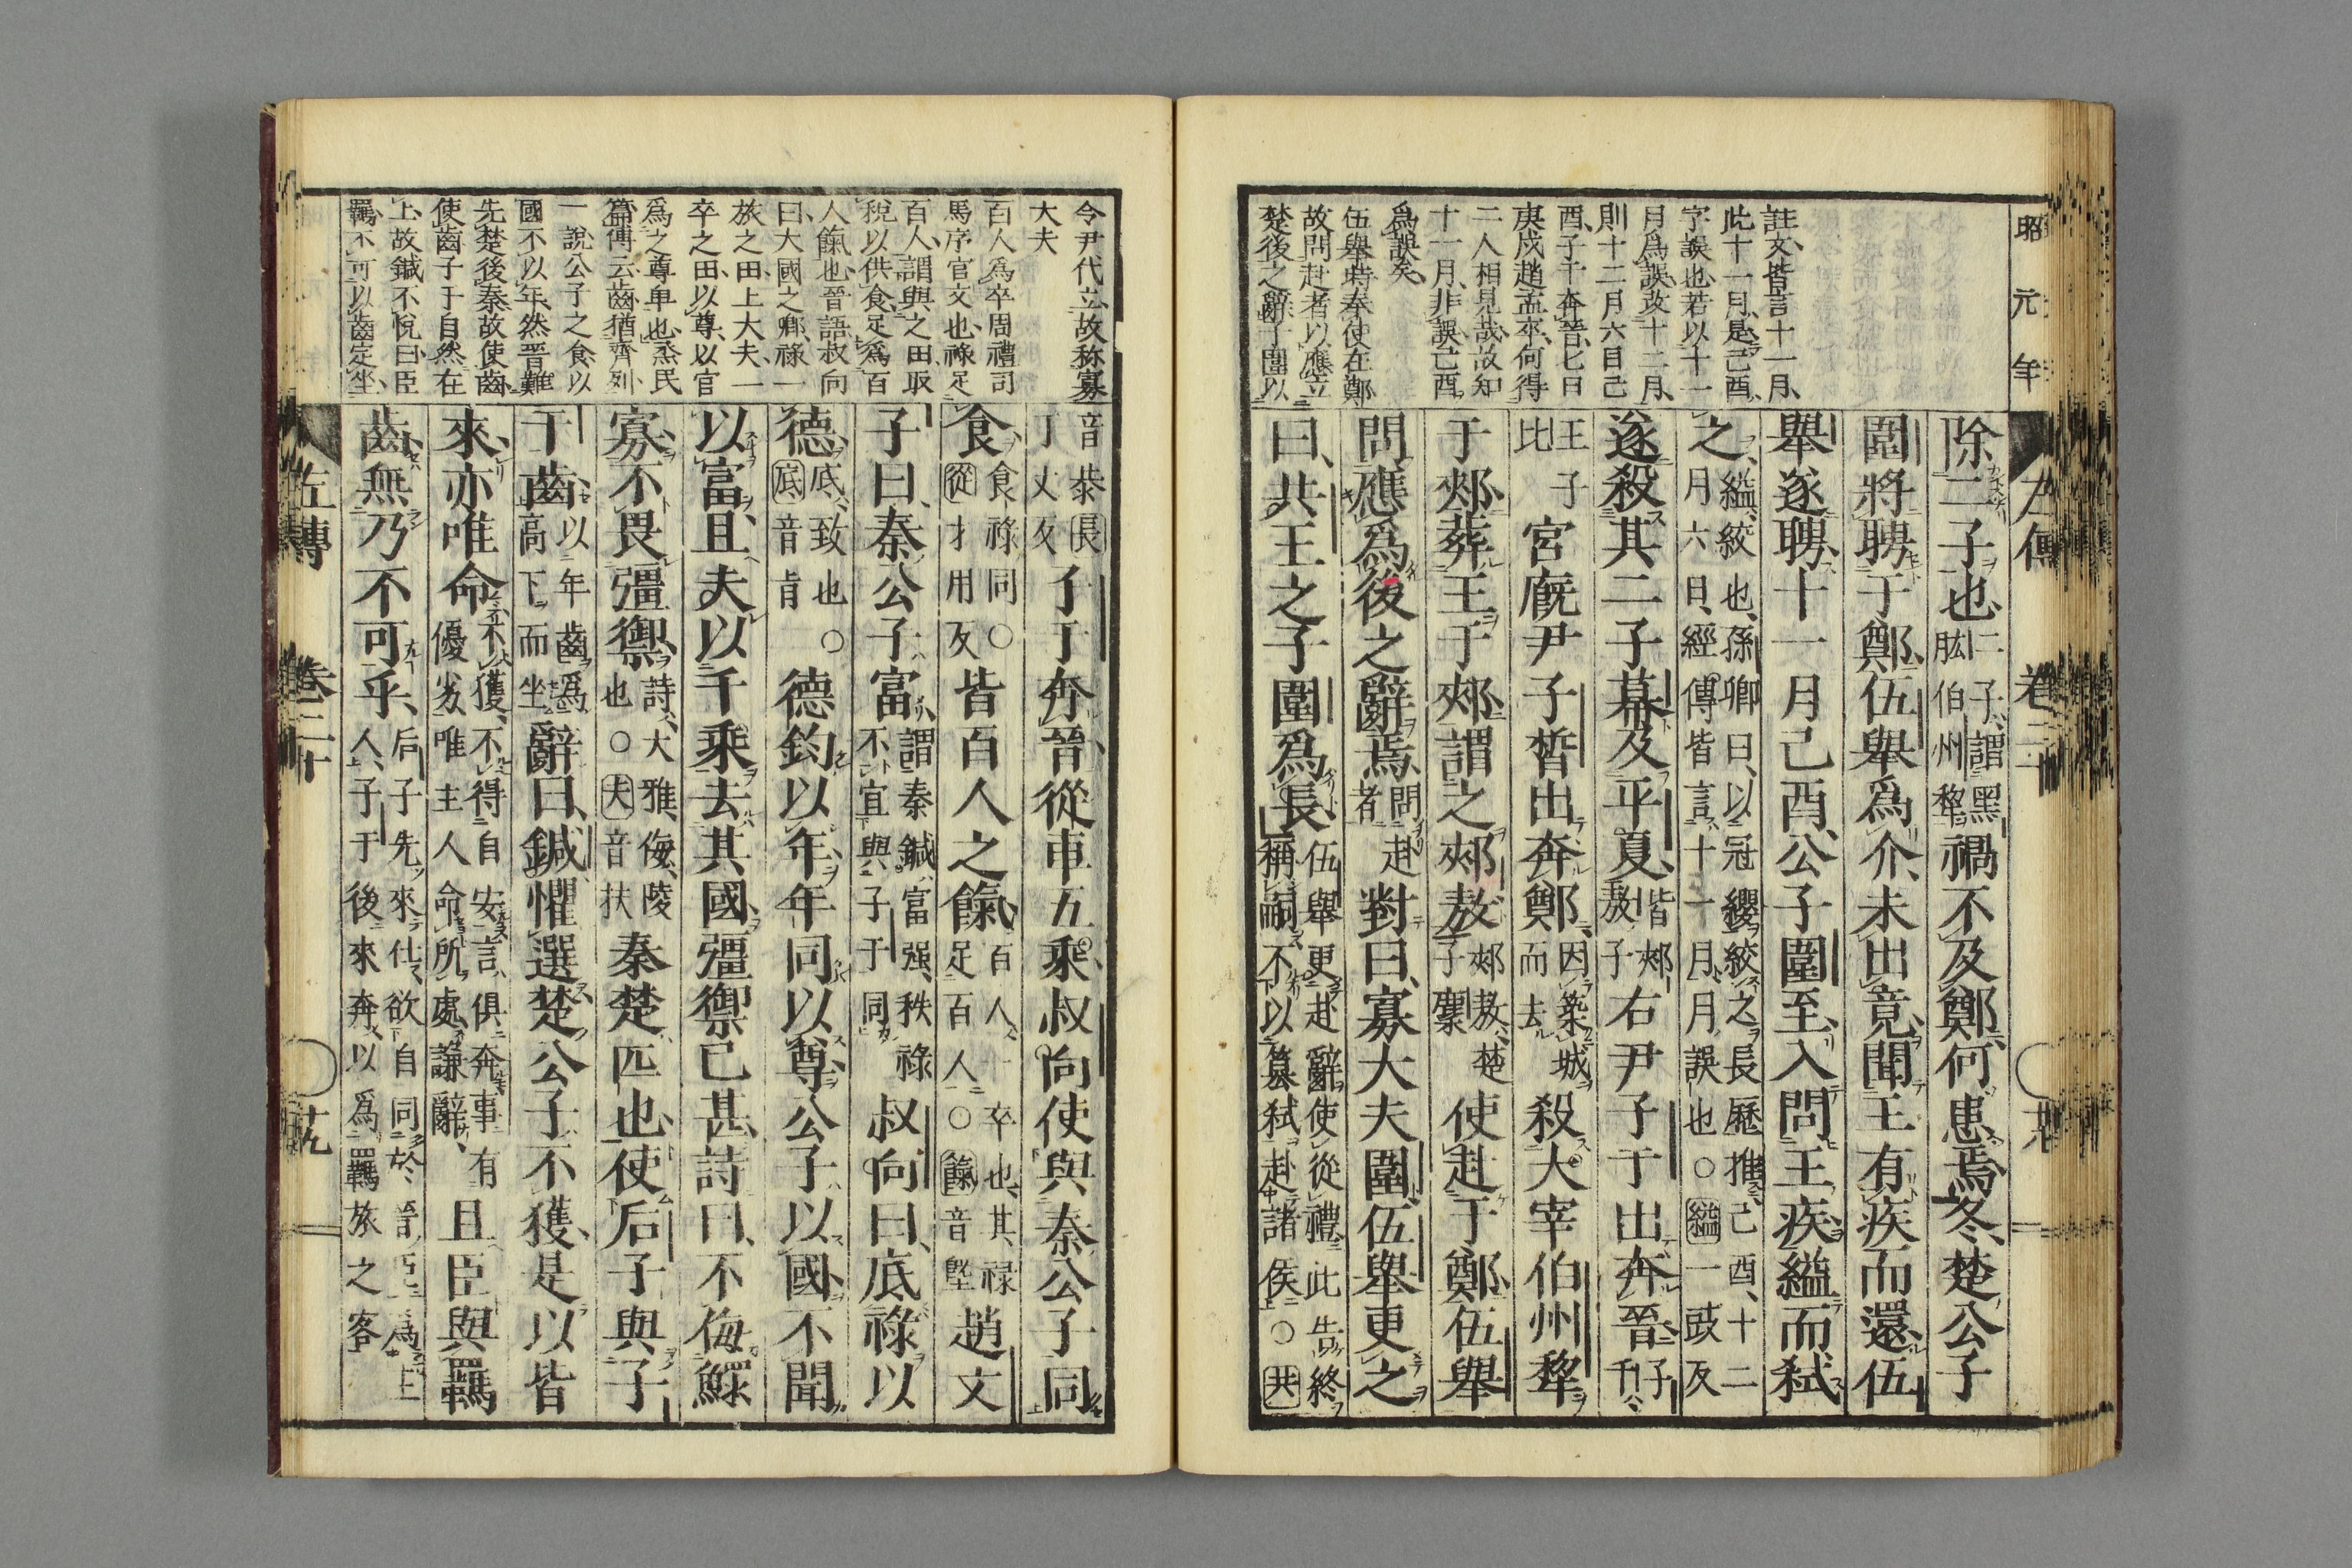 昭元年
註文皆言十一月
此十一月是己酉
字誤也若以十一
月爲誤改十二月
則十二月六日己
酉子干奔晉七日
庚戌趙孟來何得
二人相見哉故知
十一月非誤己酉
爲誤矣
伍擧時奉使在鄭
故問赴者以應立
楚後之辭子圍以
左傳 卷二十
除二子也二子謂黑肱伯州犂禍不及鄭何患焉冬楚公子
圍將聘于鄭伍擧爲介未出竟聞王有疾而還伍
擧遂聘十一月己酉公子圍至入問王疾縊而弑
之縊絞也孫卿曰以冠纓絞之長歷推己酉十二月六日經傳皆言十一月月誤也○縊一豉反
遂殺其二子幕及平夏皆郟敖子右尹子干出奔晉子干
王子比宮廐尹子晳出奔鄭因築城而去殺大宰伯州犂
于郟葬王于郟謂之郟敖郟敖楚子麇使赴于鄭伍擧
問應爲後之辭焉問赴者對曰寡大夫圍伍擧更之
曰共王之子圍爲長伍擧更赴辭使從禮此告終稱嗣不以簒弑赴諸侯○共
令尹代立故称寡
大夫
百人爲卒周禮司
馬序官文也祿足
百人謂與之田取
稅以供食足爲百
人餼也晉語叔向
曰大國之卿祿一
旅之田上大夫一
卒之田以尊以官
爲之尊卑也烝民
箋傳云齒猶齊列
一說公子之食以
國不以年然晉難
先楚後秦故使齒
使齒子于自然在
上故鍼不悅曰臣
羈不可以齒定坐
音恭長丁丈反子干奔晉從車五乘叔向使與秦公子同
食食祿同○從才用反皆百人之餼百人一卒也其禄足百人○餼音墍趙文
子曰秦公子富謂秦鍼富强秩祿不宜與子干同叔向曰底祿以
德底致也○底音㫖德鈞以年年同以尊公子以國不聞
以富且夫以千乘去其國彊禦已甚詩曰不侮鰥
寡不畏彊禦詩大雅侮陵也○夫音扶秦楚匹也使后子與子
干齒以年齒爲高下而坐辭曰鍼懼選楚公子不獲是以皆
來亦唯命不獲不得自安言俱奔事有優劣唯主人命所處謙辭且臣與羈
齒無乃不可乎后子先來仕欲自同於晉臣爲主人子干後來奔以爲羈旅之客
左傳 卷二十 十九